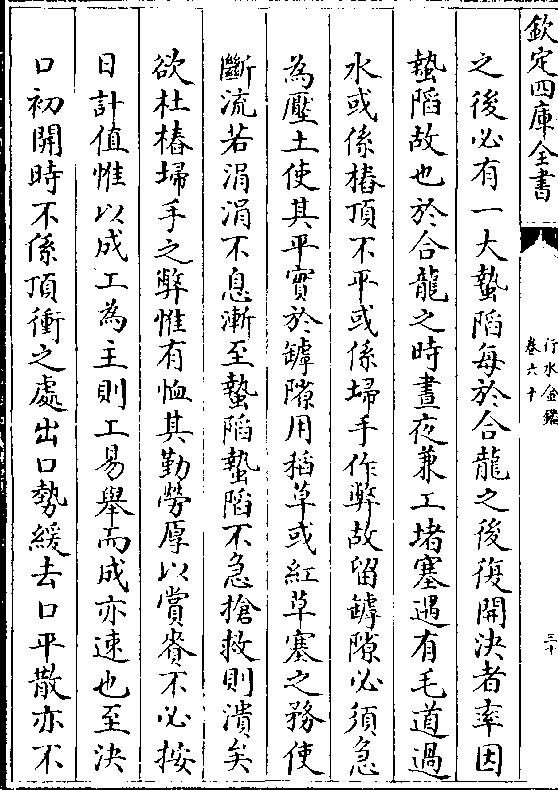 欽定四庫全書
行水金鑑
卷六十
三十
之後必有一大蟄䧟每於合龍之後復開決者率因
蟄䧟故也於合龍之時晝夜兼工堵塞遇有毛道過
水或係樁頂不平或係埽手作弊故留罅隙必須急
為壓土使其平實於罅隙用稻草或紅草塞之務使
斷流若涓涓不息漸至蟄䧟蟄䧟不急搶救則潰矣
欲杜樁埽手之弊惟有恤其勤勞厚以賞賚不必按
日計值惟以成工為主則工易舉而成亦速也至決
口初開時不係頂衝之處出口勢緩去口平散亦不